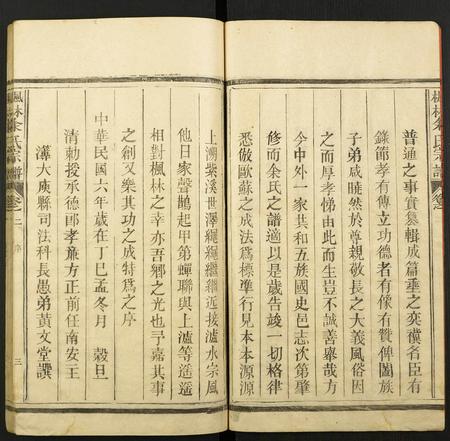 普通之事實纂輯成篇垂之奕禩名臣有
錄節孝有傳立功德者有像有贊俾闔族
子弟咸曉然於尊親敬長之大義風俗因
之而厚孝悌由此而生豈不誠善舉哉方
今中外一家共和五族國史邑志次第肇
修而余氏之譜適以是歲告竣一切格律
悉倣歐蘇之成法爲標準行見本本源源
上溯紫溪世澤繩繩繼繼近接瀘水宗風
他日家聲鵲起甲第蟬聯與上瀘等遥遥
相對楓林之幸亦吾鄉之光也予嘉其事
之創又樂其功之成特爲之序
中華民國六年歲在丁巳孟冬月 穀旦
清勅授承德郎孝廉方正前任南安二王
簿大庾縣司法科長愚弟黃文堂譔
楓林余氏宗譜 卷 二 序 三